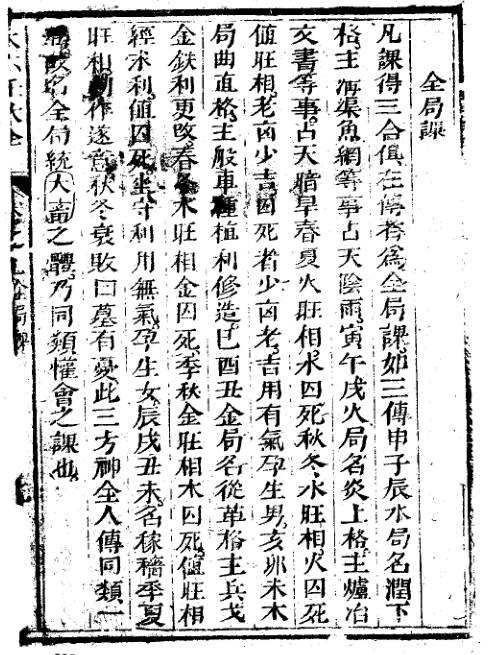 全局課
凡課得三合俱在傳者為全局課如三傳申子辰水局名潤下
格主溝渠魚網等事占天陰雨寅午戌火局名炎上格主爐冶
文書等事占天晴旱春夏火旺相水囚死秋冬水旺相火囚死
值旺相老凶少吉囚死者少凶老吉用有氣孕生男亥卯未木
局曲直格主般車種植利修造巳酉丑金局名從革格主兵戈
金鉄利更改春冬木旺相金囚死季秋金旺相木囚死值旺相
經求利值囚死坐守利用無氣孕生女辰戌丑未名稼穡季夏
旺相動作遂意秋冬衰敗曰墓有憂此三方神全人傳同類一
故名全局統大畜之體乃同類懽會之課也
全局課